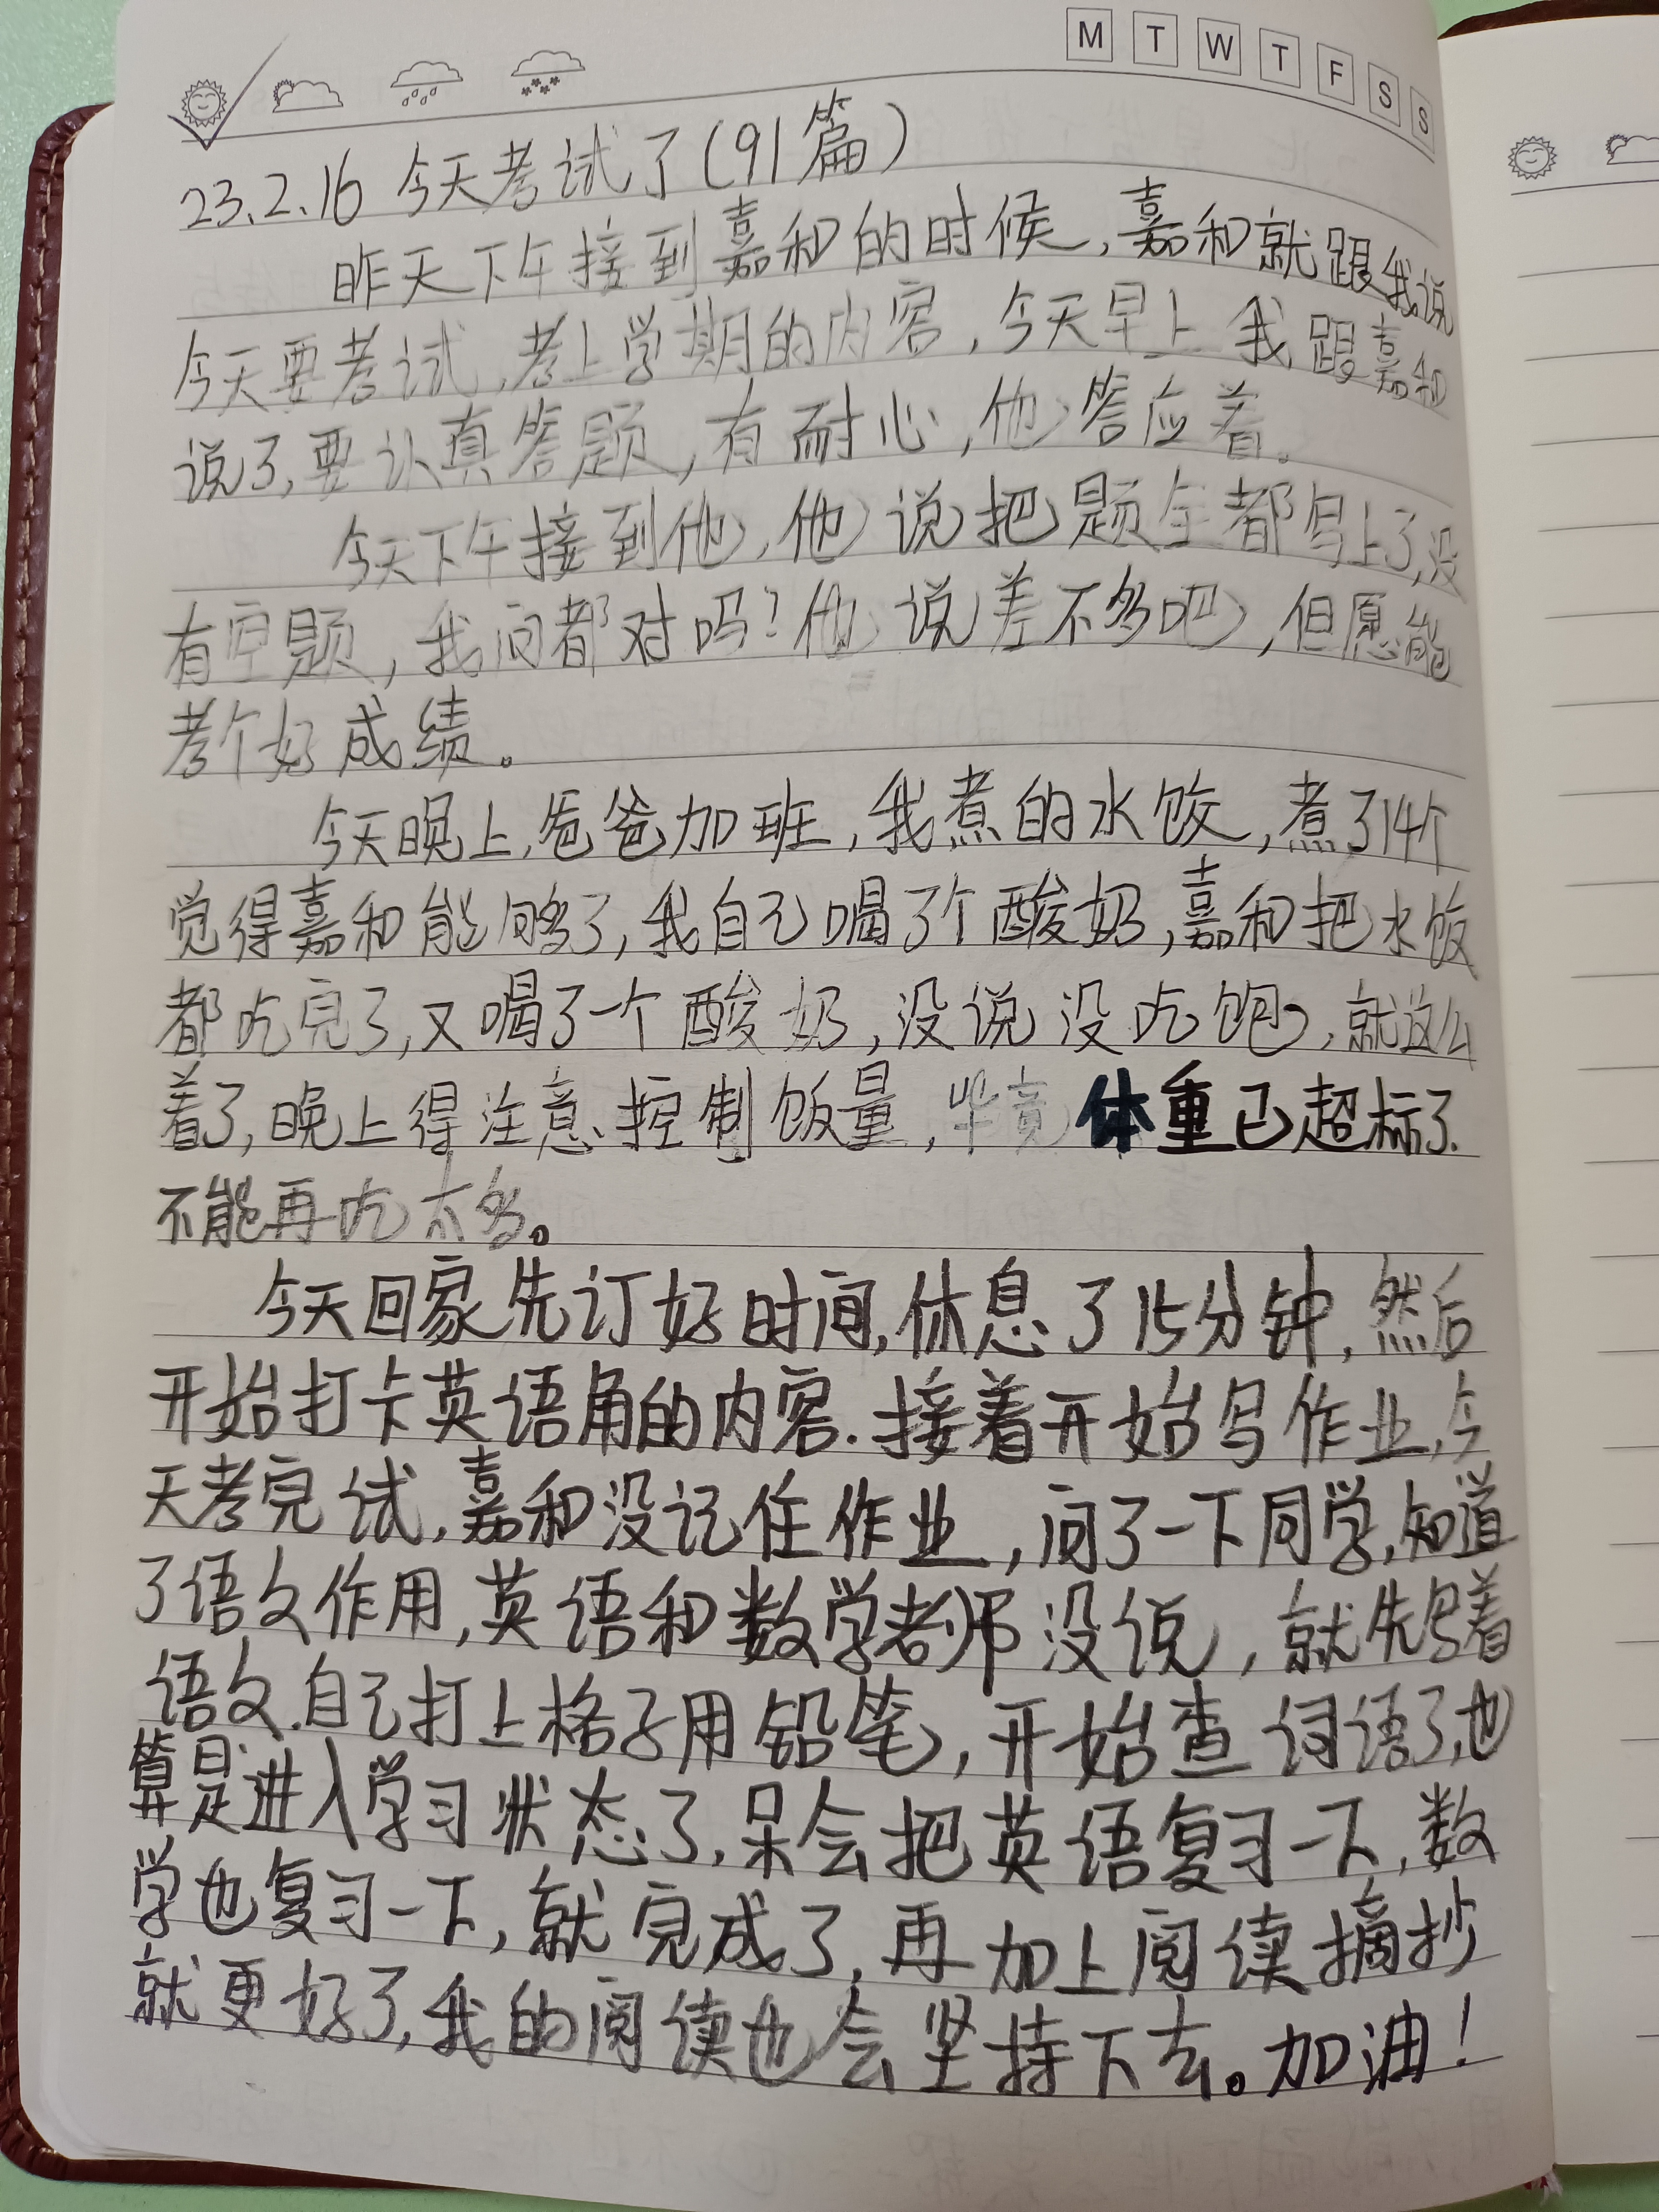 M T W T F S S
23.2.16 今天考试了(91篇)
昨天下午接到嘉和的时候,嘉和就跟我说
今天要考试,考上学期的内容,今天早上我跟嘉和
说了,要认真答题,有耐心,他答应着。
今天下午接到他,他说把题全都写上了,没
有空题,我问都对吗?他说差不多吧,但愿能
考个好成绩。
今天晚上,爸爸加班,我煮的水饺,煮了14个
觉得嘉和能够了,我自己喝了个酸奶,嘉和把水饺
都吃完了,又喝了一个酸奶,没说没吃饱,就这么
着了,晚上得注意控制饭量,毕竟体重已超标了.
不能再吃太多。
今天回家先订好时间,休息了15分钟,然后
开始打卡英语角的内容.接着开始写作业,今
天考完试,嘉和没记住作业,问了一下同学,知道
了语文作用,英语和数学老师没说,就先写着
语文.自己打上格子用铅笔,开始查词语了,也
算是进入学习状态了,呆会把英语复习一下,数
学也复习一下,就完成了,再加上阅读摘抄
就更好了,我的阅读也会坚持下去。加油!